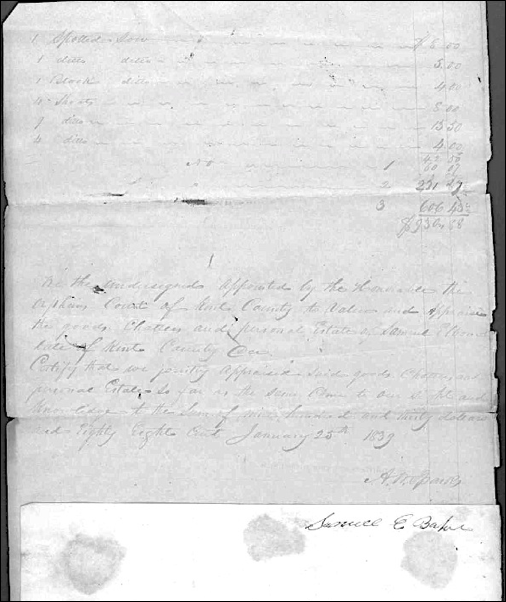 1 Spotted Sow $6.00
1 ditto ditto 5.00
1 Black ditto 4.00
4 Shoats 8.00
9 ditto 15.50
4 ditto 4.00
No 1
2 231
3 606
$930 88
We the undersigned Appointed by the Honourable the
Orphans Court of Kent County to Value and Appraise
the goods Chattels and personal Estate of Samuel
late of Kent County Dec
Certify that we jointly Appraised said goods Chattels and
personal Estate so far as the same Came to our sight and
Knowledge to the Sum of nine hundred and thirty dollars
and Eighty Eight Cent January 25th 1839
Samuel E Baker